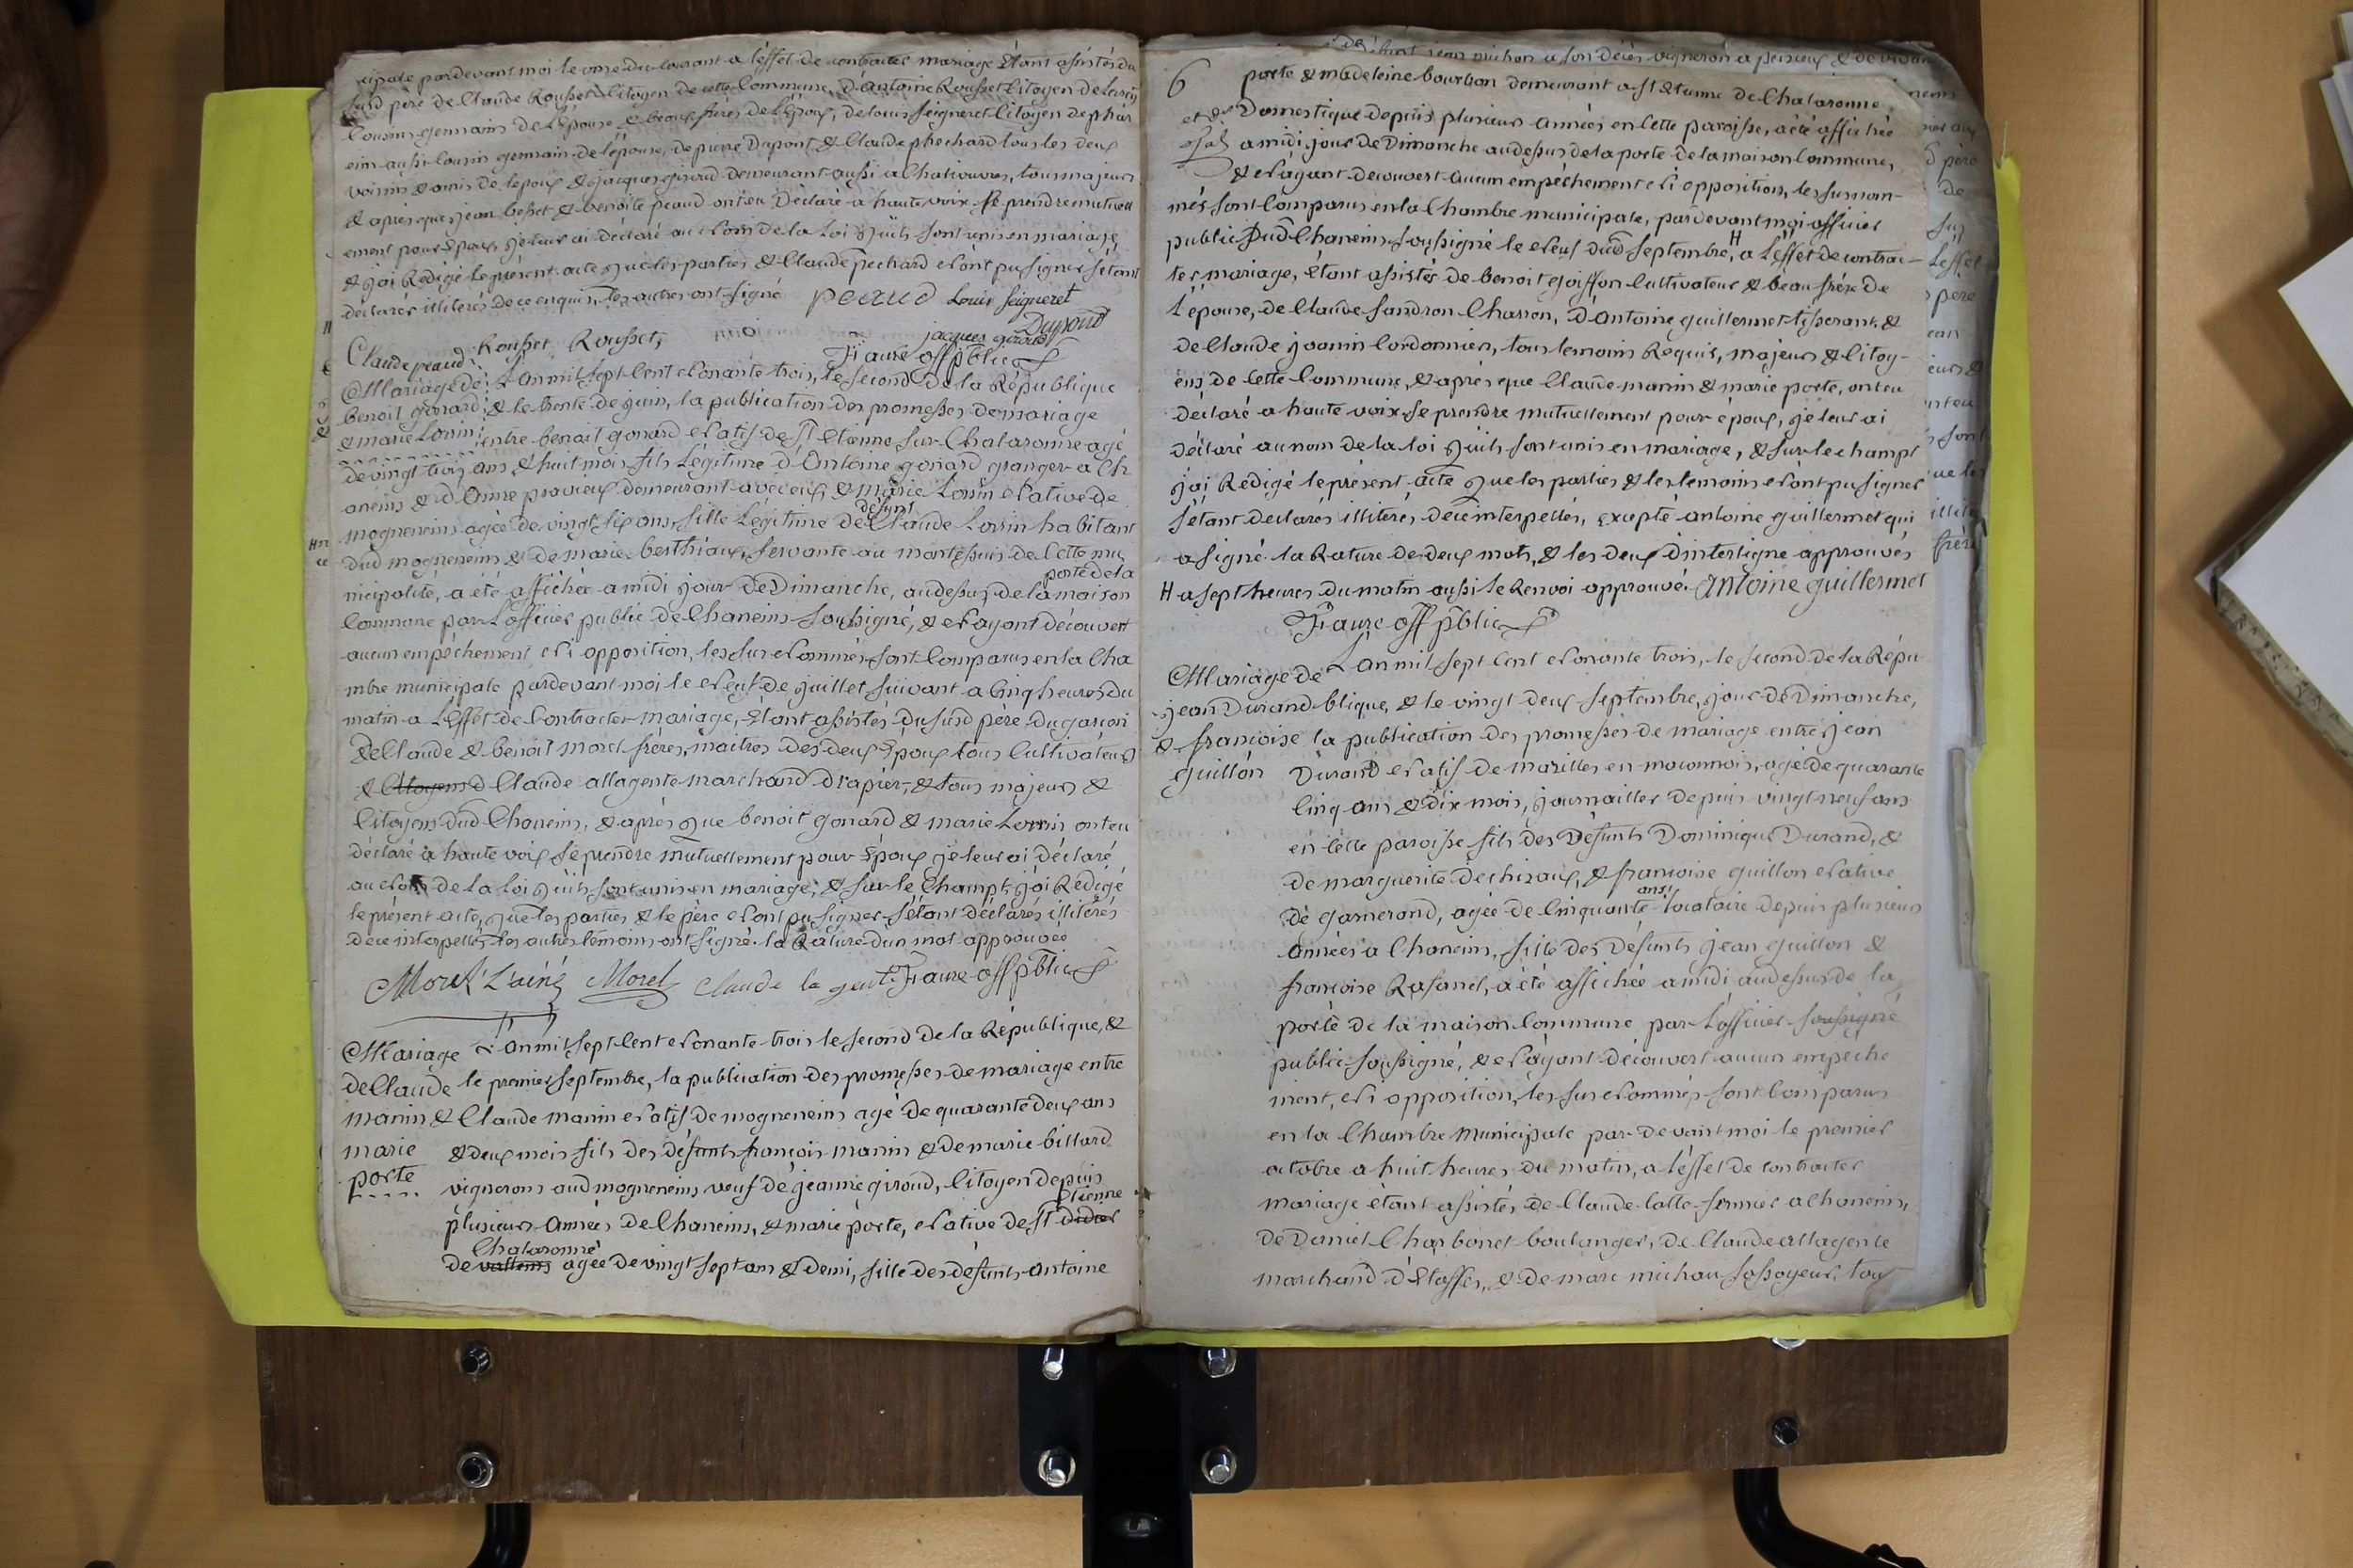 cipale pardevant moi le onze du courant a l'éffet de contracter mariage Étant assistés du
susd père de Claude Rousset Citoyen de cette Commune, d'Antoine Rousset Citoyen de
Cousins germains de l'épouse & beaux frères de l'Époux, de Louis Seigneret Citoyen de phar
ein aussi Cousin germain de l'épouse, de pierre Dupont & Claude phechard tous les deux
voisins & amis de l'époux & jacques giroud demeurant aussi a Chatiouvres, tous majeurs
& après que jean besset & benoite peaud ont eu Déclaré a haute voix se prendre mutuell
ement pour Époux je leur ai déclaré au Nom de la Loi qu'ils sont unis en mariage
& j'ai Redigé le présent acte que les parties & Claude pechard n'ont pu signer s'étant
déclarés illiterés de ce enquis, les autres ont signé peaud Louis Seigneret
Dupond
Rousset Rousset, jacques giroud
Claude peaud Faure off pblic
Mariage de L'an mil sept Cent Nonante trois, le second de la République
benoit gonard & le trente de juin, la publication des promesses de mariage
& marie Lorin entre benoit gonard Natif de St Etienne sur Chalaronne agé
de vingt trois ans & huit mois fils Légitime d'Antoine gonard granger a Ch
aneins & d'Anne pravieux demeurant avec eux, & Marie Lorin Native de
mogneneins agée de vingt six ans, fille Légitime de défunt Claude Lorin habitant
dud mogneneins & de marie berthiaux, servante au montessuis de Cette mu
nicipalité, a été affichée a midi jour de Dimanche, audessus de porte de la la maison
Commune par L'officier public de Chaneins Soussigné, & N'ayant découvert
aucun empéchement Ni opposition, les sus Nommés sont Comparus en la Cha
mbre municipale pardevant moi le Neuf de juillet suivant a Cinq heures du
matin a L'Effet de Contracter Mariage, Étant assistés du susd père du garcon
de Claude & benoit morel frères, maitres des deux Époux tous Cultivateurs
& Citoyens d Claude allagente marchand drapier, & tous majeurs &
Citoyens dud Chaneins, & après que benoit gonard & marie Lorrin ont eu
déclaré a haute voix se prendre mutuellement pour Époux je leur ai déclaré
au Nom de la loi qu'ils sont unis en mariage, & sur le Champt j'ai Redigé
le présent acte, que les parties & le père N'ont pu signer s'étant déclarés illiterés
de ce interpellés les autres témoins ont signé. la Rature d'un mot approuvée
Morel L'ainé Morel Claude la gente Faure off pblic
Mariage L'an mil sept Cent Nonante trois le second de la République, &
de Claude le premier septembre, la publication des promesses de mariage entre
manin & Claude manin Natif de mogneneins agé de quarante deux ans
marie & deux mois fils des défunts françois manin & de marie billard
porte vignerons aud mogneneins veuf de jeanne giroud, Citoyen depuis
plusieurs Années de Chaneins, & marie porte, Native de St didier Etienne
de vallems Chalaronne agée de vingt sept ans & demi, fille des défunts Antoine
6 porte & madeleine bourbon demeurant a St Etienne de Chalaronne
Domestique depuis plusieurs années en Cette paroisse, a été affichée
a midi jour de Dimanche audessus de la porte de la maison Commune,
& N'ayant decouvert aucun empéchement Ni opposition, les susnom-
més sont Comparus en la Chambre municipale, pardevant moi officier
public dud Chaneins soussigné le Neuf dud septembre, H a L'éffet de contrac-
ter mariage, étant assistés de benoit goiffon Cultivateur & beau frère de
L'épouse, de Claude Sandron Charron, d'Antoine guillermet tisserant, &
de Claude joanin Cordonnier, tous temoins Requis, majeurs & Citoy-
ens de Cette Commune, & après que Claude manin & marie porte, ont eu
déclaré a haute voix se prendre mutuellement pour époux, je leur ai
déclaré au nom de la loi qu'ils sont unis en mariage, & sur le champt
j'ai Redigé le présent acte que les parties & les temoins n'ont pu signer
s'étant declarés illiterés de ce interpellés, excepté Antoine guillermet qui
a signé la Rature de deux mots, & les deux d'interligne approuvés
H a sept heures du matin aussi le Renvoi approuvé. Antoine guillermet
Faure off pblic
Mariage de L'an mil sept Cent Nonante trois, le second de la Répu
jean Durand blique, & le vingt deux septembre, jour de Dimanche,
& francoise la publication des promesses de mariage entre jean
guillon Durand Natif de mazilles en maconnois, agé de quarante
Cinq ans & dix mois, journaillier depuis vingt neuf ans
en Cette paroisse fils des Défunts Dominique Durand, &
de marguerite dechizaux, & francoise guillon Native
de garnerand, agée de Cinquante ans, locataire depuis plusieurs
Années a Chaneins, fille des Défunts jean guillon &
francoise Rasanel, a été affichée a midi audessus de la
porte de la maison Commune par L'officier soussigné
public soussigné, & N'ayant découvert aucun empeche
ment, Ni opposition, les sus Nommés sont Comparus
en la Chambre Municipale par devant moi le premier
octobre a huit heures du matin, a L'éffet de contracter
mariage étant assistés de Claude Catte fermier a Chaneins,
de Daniel Charbonet boulanger, de Claude allagente
marchand d'Etoffes, & de marc michau fossoyeur, tous